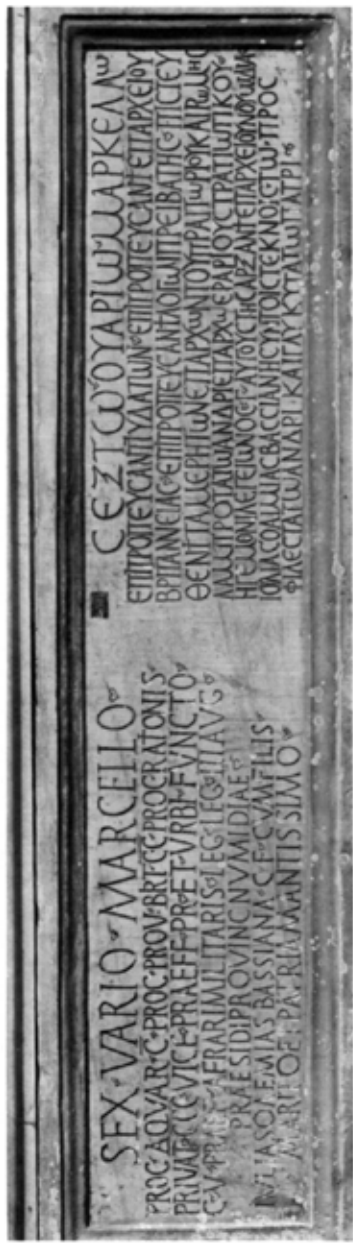 SEX·VARIO·MARCELLO
PROC·AQVAR·C·PROC·PROV·BRIT·CC·PROC·RATIONIS
PRIVAT·CCC·VICE·PRAEFF·PR·ET·VRBI·FVNCTO
C·V·PRAEF·AERARI·MILITARIS·LEG·LEG·III·AVG
PRAESIDI·PROVINC·NVMIDIAE
IVLIA·SOAEMIAS·BASSIANA·C·F·CVM·FILIS
MARITO·ET·PATRI·AMANTISSIMO
ϹΕΞΤΩ ΟΥΑΡΙΩ ΜΑΡΚΕΛΛΩ
ΕΠΙΤΡΟΠΕΥϹΑΝΤΙ ΥΔΑΤΩΝ ΕΠΙΤΡΟΠΕΥϹΑΝΤΙ ΕΠΑΡΧΕΙΟΥ
ΒΡΙΤΑΝΝΕΙΑϹ ΕΠΙΤΡΟΠΕΥϹΑΝΤΙ ΛΟΓΩΝ ΠΡΕΙΒΑΤΗϹ ΠΙϹΤΕΥ
ΘΕΝΤΙ ΤΑ ΜΕΡΗ ΤΩΝ ΕΠΑΡΧΩΝ ΤΟΥ ΠΡΑΙΤΩΡΙΟΥ ΚΑΙ ΡΩΜΗϹ
ΛΑΜΠΡΟΤΑΤΩ ΑΝΔΡΙ ΕΠΑΡΧΩ ΕΡΑΡΙΟΥ ϹΤΡΑΤΙΩΤΙΚΟΥ
ΗΓΕΜΟΝΙ ΛΕΓΕΙΩΝΟϹ Γ ΑΥΓΟΥϹΤΗϹ ΑΡΞΑΝΤΙ ΕΠΑΡΧΕΙΟΥ ΝΟΥΜΙΔΙΑϹ
ΙΟΥΛΙΑ ϹΟΑΙΜΙΑϹ ΒΑϹϹΙΑΝΗ ϹΥΝ ΤΟΙϹ ΤΕΚΝΟΙϹ ΤΩ ΠΡΟϹ
ΦΙΛΕϹΤΑΤΩ ΑΝΔΡΙ ΚΑΙ ΓΛΥΚΥΤΑΤΩ ΠΑΤΡΙ